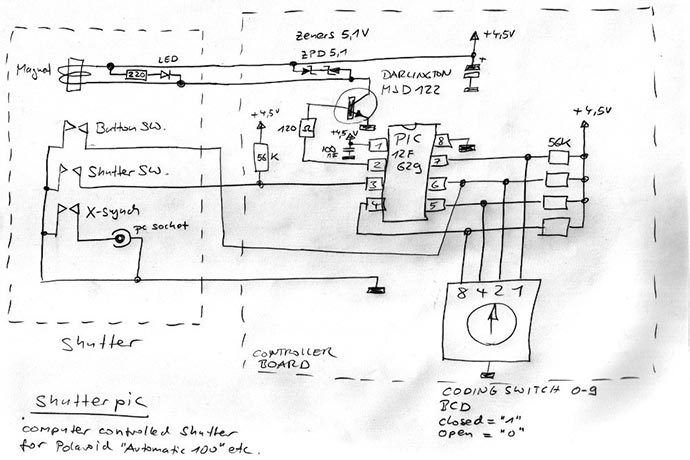 zeners 5,1V
ZPD 5,1
+4,5V
+
LED
Magnet
220
DARLINGTON
MJD 122
+4,5V
120
Ω
+4,5V
100
nF
PIC
12F
629
1
2
3
4
8
7
6
5
+4,5V
56K
56
K
Button SW.
Shutter SW.
X-synch
pc socket
8 4 2 1
Shutter
CONTROLLER
BOARD
CODING SWITCH 0-9
BCD
closed = "1"
open = "0"
Shutterpic
computer controlled Shutter
for Polaroid "Automatic 100" etc.